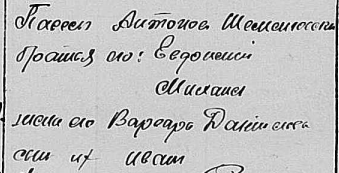 Павел Антонов
братья его: Евдоким
Михаил
жена его Варвара Данилова
сын их Иван